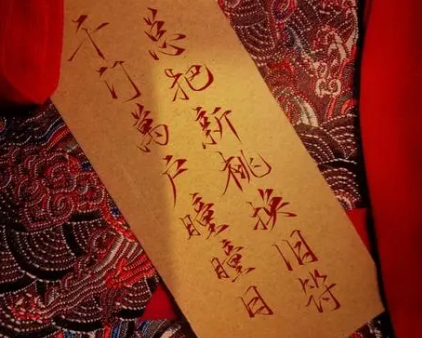 千门萬户曈曈日
总把新桃换旧符